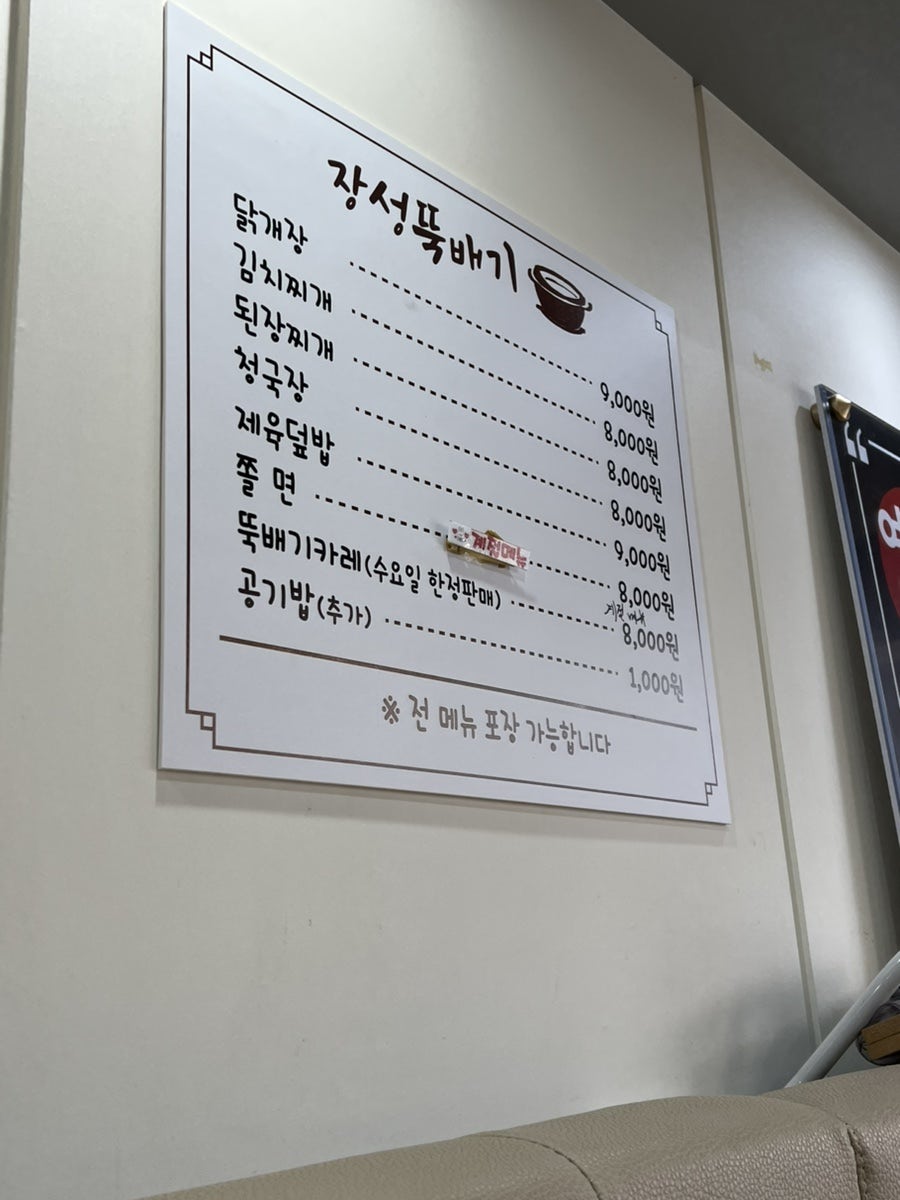 장성뚝배기
닭개장 9,000원
김치찌개 8,000원
된장찌개 8,000원
청국장 8,000원
제육덮밥 9,000원
쫄 면 계절메뉴 8,000원
계절 메뉴
뚝배기카레(수요일 한정판매) 8,000원
공기밥(추가) 1,000원
※ 전 메뉴 포장 가능합니다
“